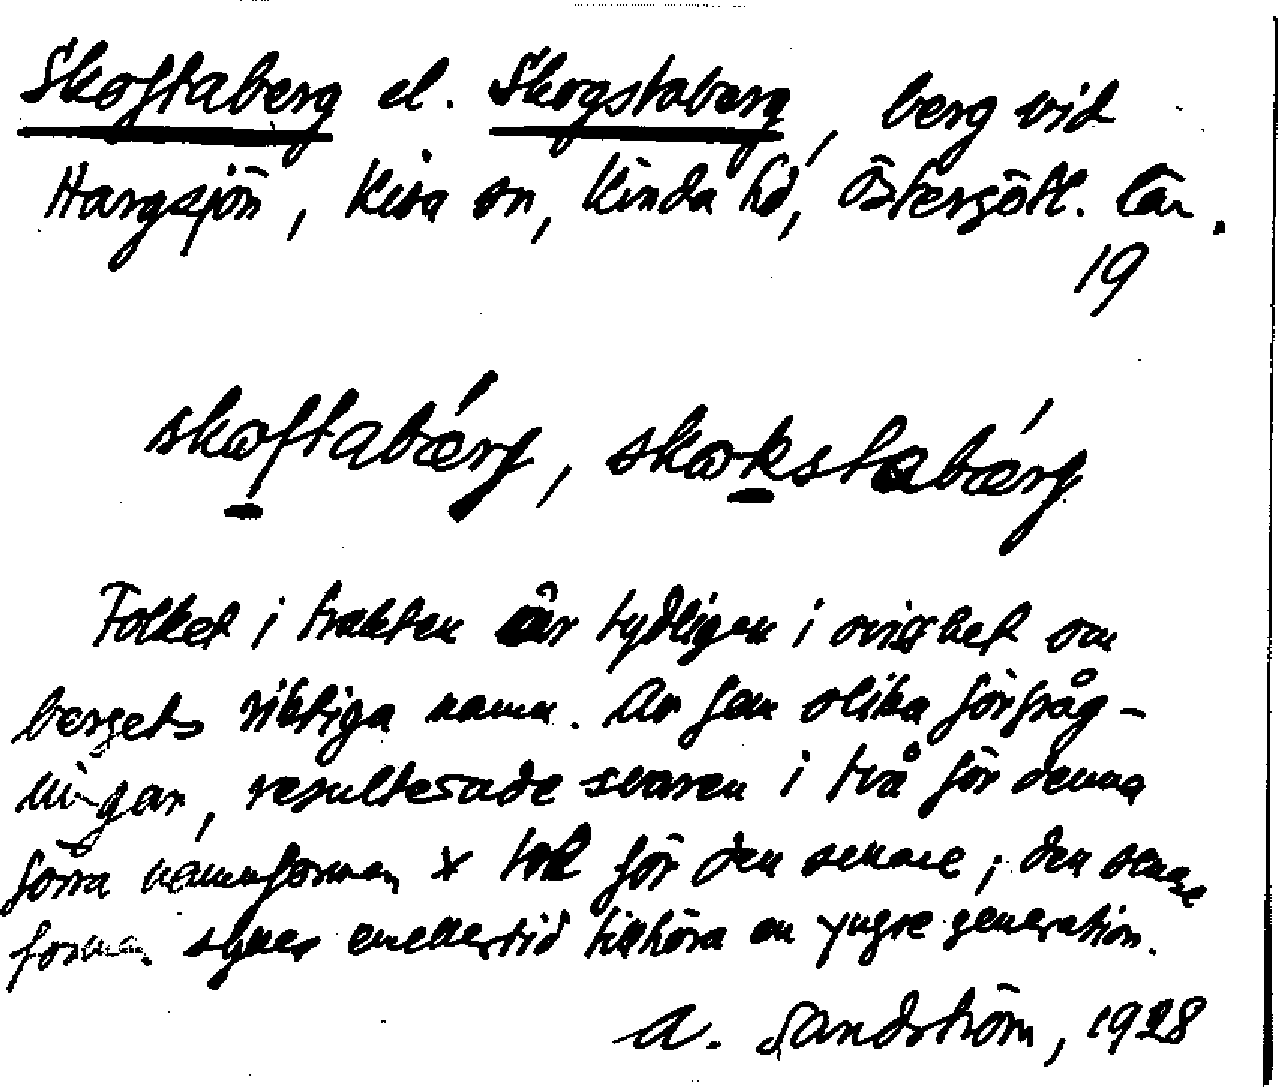 Skoftaberg el. Skogstaberg, berg vid
Hargsjön, Kisa sn, Kinda hd, Östergötl. län.
19
skoftabærg, skokstabærg
Folket i trakten är tydligen i ovisshet om
bergets riktiga namn. Av fem olika förfråg-
ningar, resulterade svaren i två för denna
förra namnformen & tre för den senare; den senare
formen synes emellertid tillhöra en yngre generation.
A. Sandström, 1928